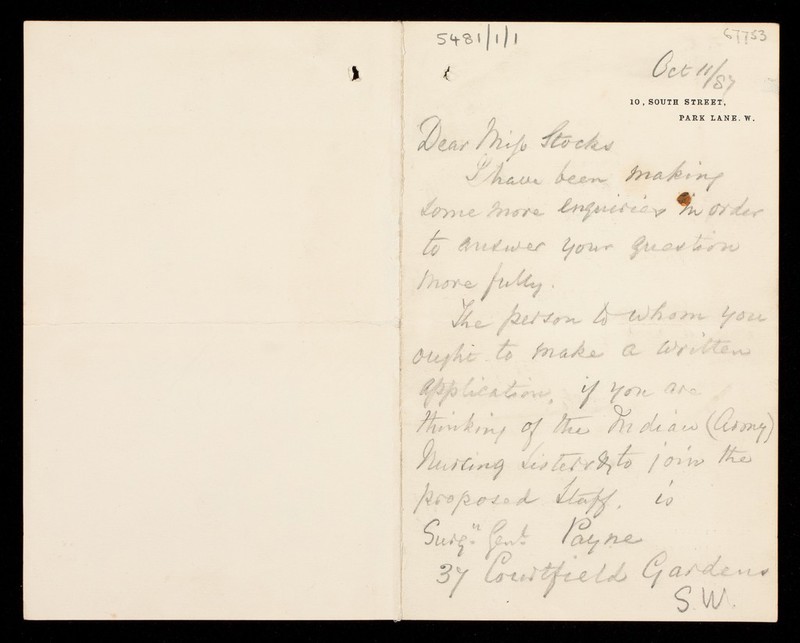 5481/1/1
67753
Oct 11/87
10, SOUTH STREET,
PARK LANE. W.
Dear Miss Stocks
I have been making
some more enquiries in order
to answer your question
more fully.
The person to whom you
ought to make a written
application, if you are
thinking of the Indian (Army)
Nursing Sisters & to join the
proposed Staff, is
Surgn. Genl. Payne
37 Courtfield Gardens
S.W.